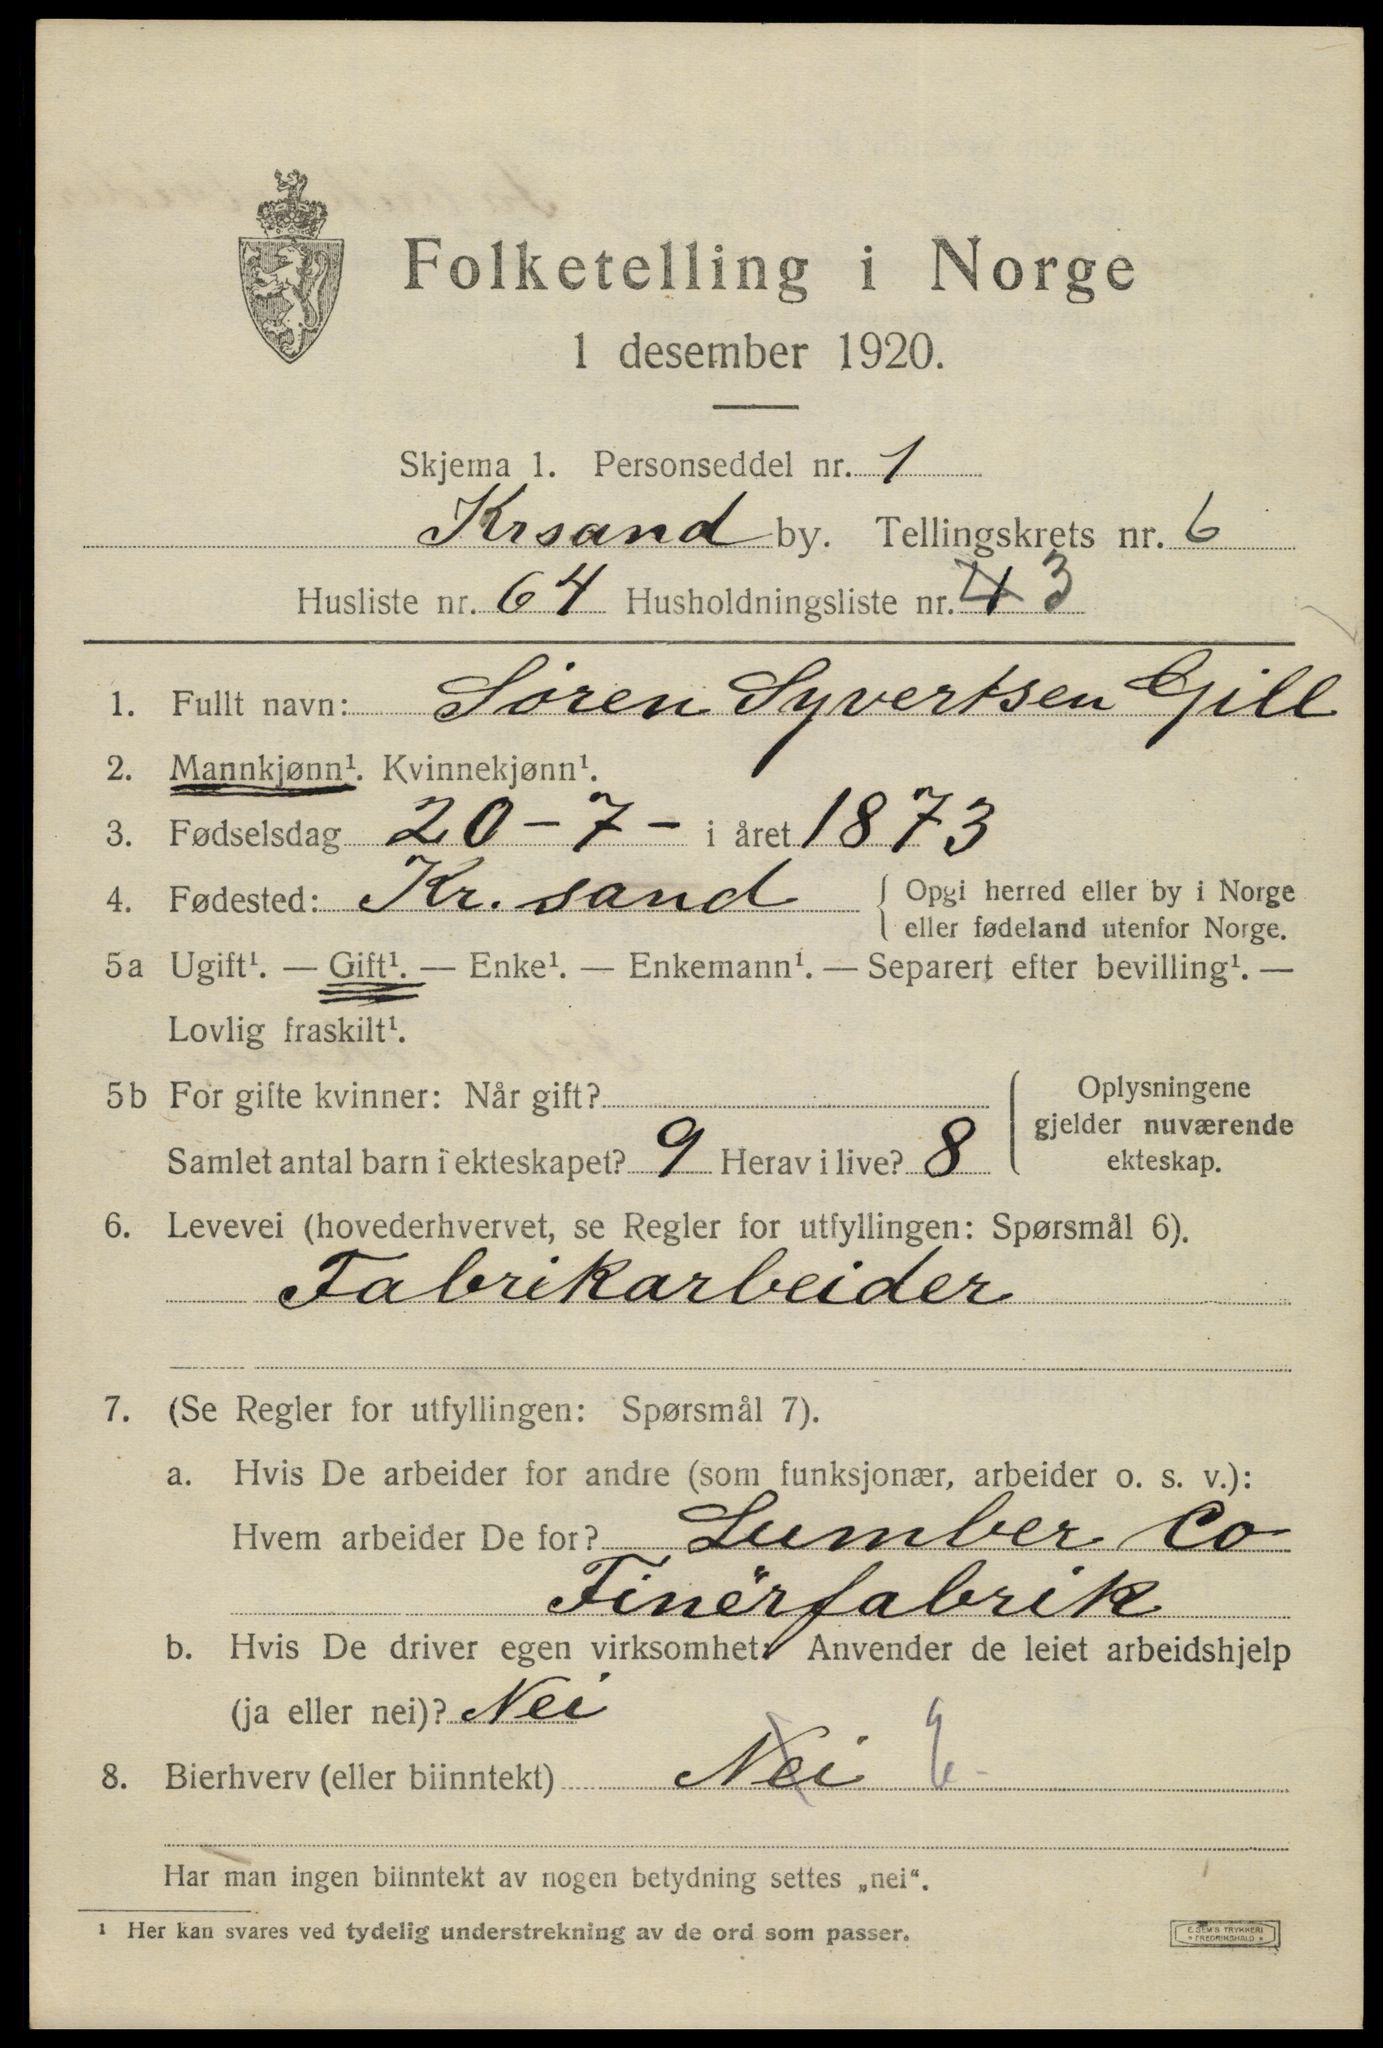 Folketelling i Norge
1 desember 1920.
Skjema 1. Personseddel nr. 1
Krsand by. Tellingskrets nr. 6
Husliste nr. 64 Husholdningsliste nr. 4 3
1. Fullt navn: Sören Syvertsen Gill
2. Mannkjønn¹. Kvinnekjønn¹.
3. Fødselsdag 20 - 7 - i året 1873
4. Fødested: Kr. sand { Opgi herred eller by i Norge
eller fødeland utenfor Norge.
5a Ugift¹. — Gift¹. — Enke¹. — Enkemann¹. — Separert efter bevilling¹. —
Lovlig fraskilt¹.
5b For gifte kvinner: Når gift?
Samlet antal barn i ekteskapet? 9 Herav i live? 8
Oplysningene
gjelder nuværende
ekteskap.
6. Levevei (hovederhvervet, se Regler for utfyllingen: Spørsmål 6).
Fabrikarbeider
7. (Se Regler for utfyllingen: Spørsmål 7).
a. Hvis De arbeider for andre (som funksjonær, arbeider o. s. v.):
Hvem arbeider De for? Lumber Co
Finérfabrik
b. Hvis De driver egen virksomhet: Anvender de leiet arbeidshjelp
(ja eller nei)? Nei
8. Bierhverv (eller biinntekt) Nei
Har man ingen biinntekt av nogen betydning settes „nei“.
¹ Her kan svares ved tydelig understrekning av de ord som passer.
E. SEM'S TRYKKERI
* FREDRIKSHALD *